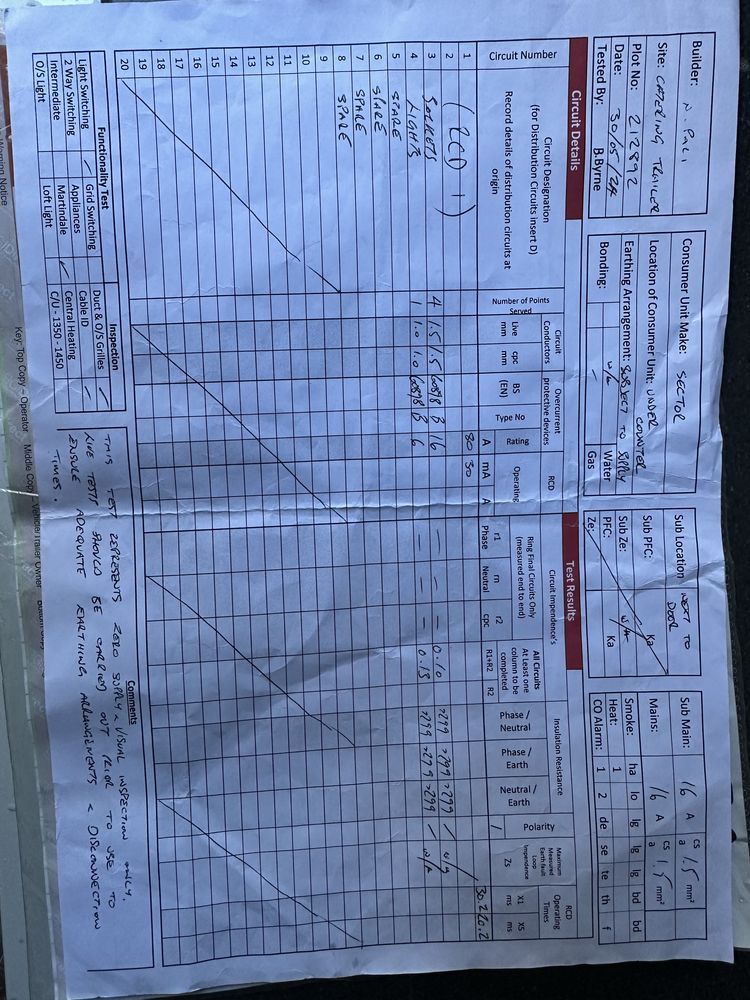 Builder: N. PACI
Site: CATERING TRAILER
Plot No: 212892
Date: 30/05/24
Tested By: B.Byrne
Consumer Unit Make: SECTOR
Location of Consumer Unit: UNDER COUNTER
Earthing Arrangement: SUBJECT TO SUPPLY
Bonding: N/A Water
Gas
Sub Location NEXT TO DOOR
Sub PFC: Ka
Sub Ze: N/A
PFC: Ka
Ze:
Sub Main: 16 A csa 1.5 mm²
Mains: 16 A csa 1.5 mm²
Smoke: ha lo lg lg lg bd bd
Heat: 1
CO Alarm: 1 2 de se te th f
Circuit Details
Test Results
Circuit Number
Circuit Designation
(for Distribution Circuits insert D)
Record details of distribution circuits at
origin
Number of Points Served
Circuit Conductors
Live mm
cpc mm
Overcurrent protective devices
BS (EN)
Type No
Rating A
RCD
Operating mA A
Circuit Impendence's
Ring Final Circuits Only
(measured end to end)
r1 Phase
rn Neutral
r2 cpc
All Circuits
At Least one column to be completed
R1+R2 R2
Insulation Resistance
Phase / Neutral
Phase / Earth
Neutral / Earth
Polarity
Maximum Measured Earth fault Loop Impendence
Zs
RCD Operating Times
X1 ms
X5 ms
1 80 30 / 30.2 20.2
2 (RCD 1)
3 SOCKETS 4 1.5 1.5 60898 B 16 — — — 0.10 >299 >299 >299 / N/A
4 LIGHTS 1 1.0 1.0 60898 B 6 — — — 0.13 >299 >299 >299 / N/A
5 SPARE
6 SPARE
7 SPARE
8 SPARE
9
10
11
12
13
14
15
16
17
18
19
20
Functionality Test
Light Switching Grid Switching
2 Way Switching Appliances
Intermediate Martindale
O/S Light Loft Light
Inspection
Duct & O/S Grilles
Cable ID
Central Heating
C/U - 1350 - 1450
Comments
THIS TEST REPRESENTS ZERO SUPPLY & VISUAL INSPECTION ONLY.
LIVE TESTS SHOULD BE CARRIED OUT PRIOR TO USE TO
ENSURE ADEQUATE EARTHING ARRANGEMENTS & DISCONNECTION
TIMES.
Key: Top Copy – Operator Middle Copy – Vehicle/Trailer Owner
Warning Notice